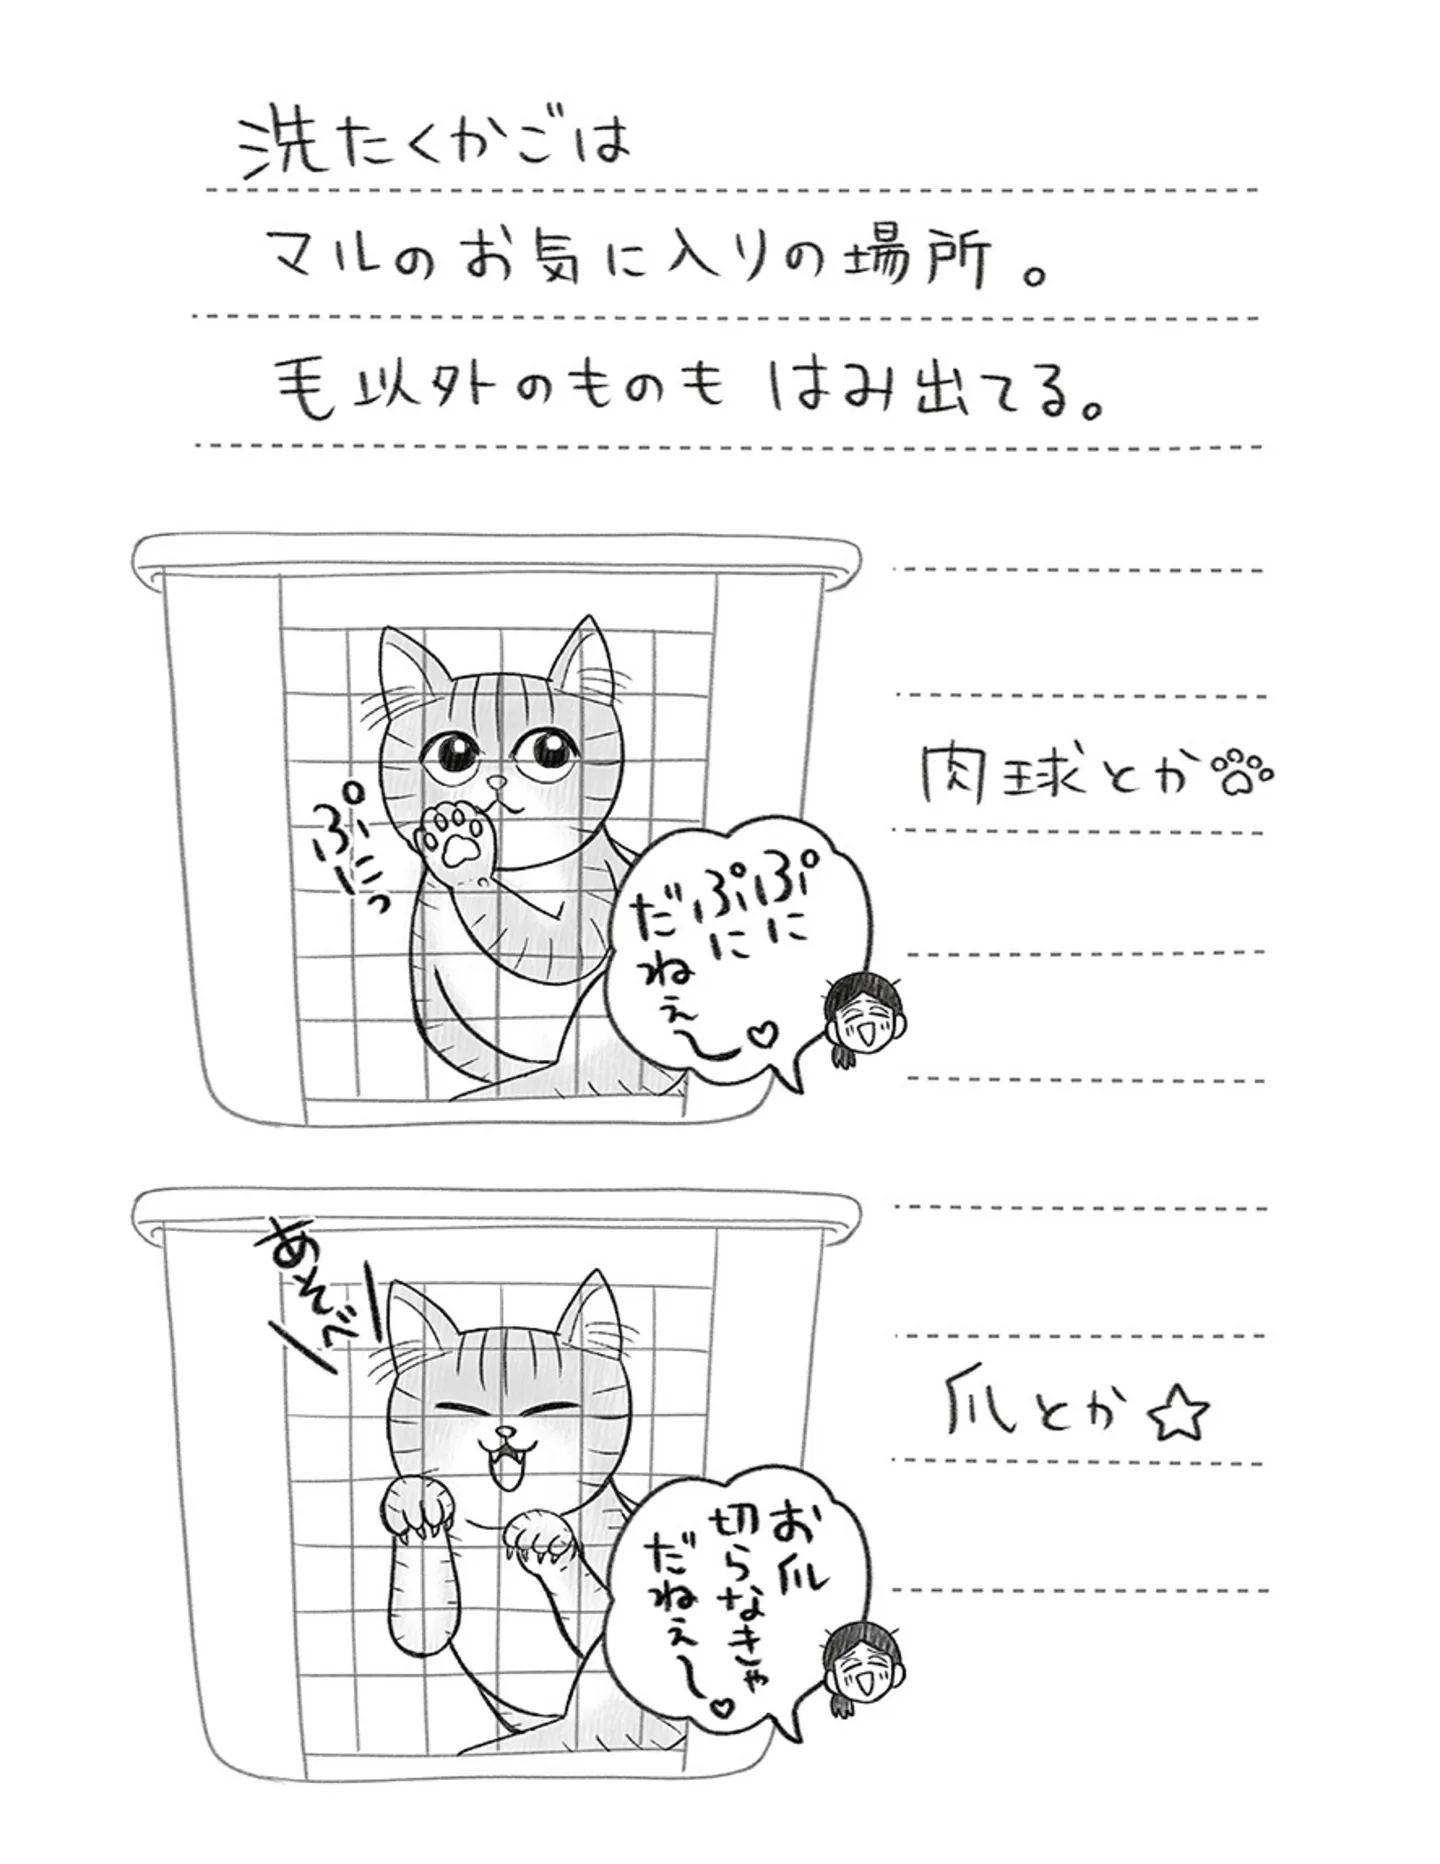 洗たくかごは
マルのお気に入りの場所。
毛以外のものもはみ出てる。
肉球とか
ぷにっ
ぷに
ぷに
だねぇ〜♡
あそべ
爪とか☆
お爪
切らなきゃ
だねぇ〜♡